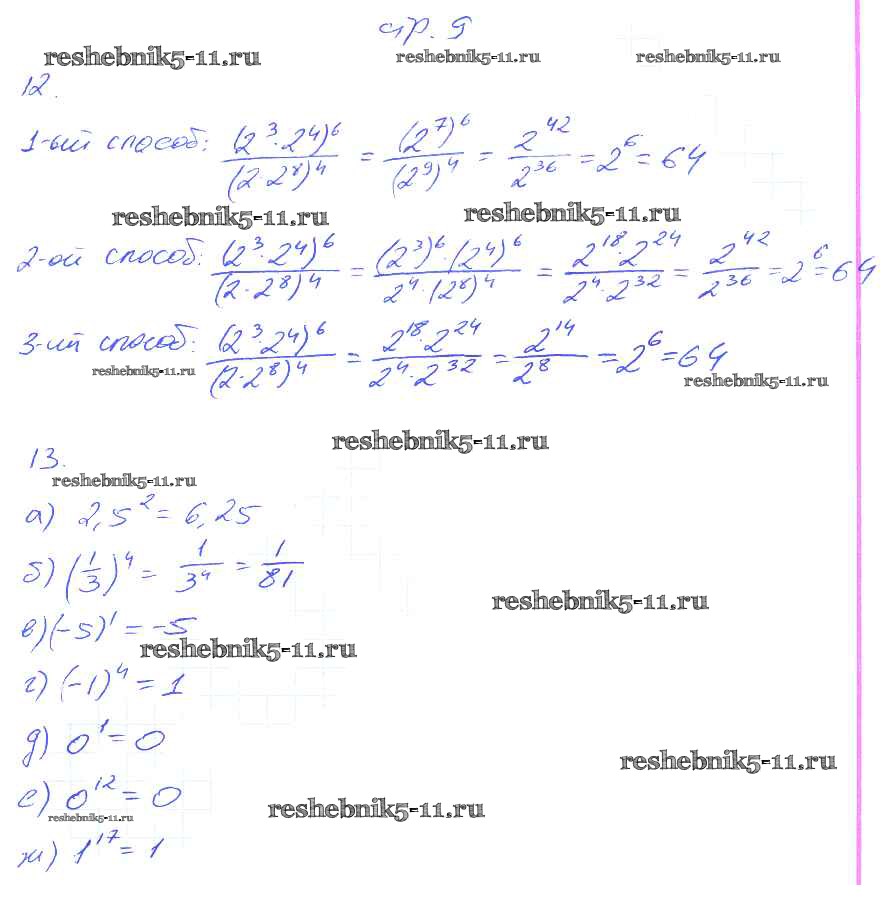 стр. 9
reshebnik5-11.ru reshebnik5-11.ru reshebnik5-11.ru
12.
1-ый способ: (2^3 · 2^4)^6 / (2 · 2^8)^4 = (2^7)^6 / (2^9)^4 = 2^42 / 2^36 = 2^6 = 64
reshebnik5-11.ru reshebnik5-11.ru
2-ой способ: (2^3 · 2^4)^6 / (2 · 2^8)^4 = (2^3)^6 · (2^4)^6 / 2^4 · (2^8)^4 = 2^18 · 2^24 / 2^4 · 2^32 = 2^42 / 2^36 = 2^6 = 64
3-ий способ: (2^3 · 2^4)^6 / (2 · 2^8)^4 = 2^18 · 2^24 / 2^4 · 2^32 = 2^14 / 2^8 = 2^6 = 64
reshebnik5-11.ru reshebnik5-11.ru
reshebnik5-11.ru
13.
reshebnik5-11.ru
а) 2,5^2 = 6,25
б) (1/3)^4 = 1/3^4 = 1/81
reshebnik5-11.ru
в) (-5)^1 = -5
reshebnik5-11.ru
г) (-1)^4 = 1
д) 0^1 = 0
reshebnik5-11.ru
е) 0^12 = 0
reshebnik5-11.ru reshebnik5-11.ru
ж) 1^17 = 1